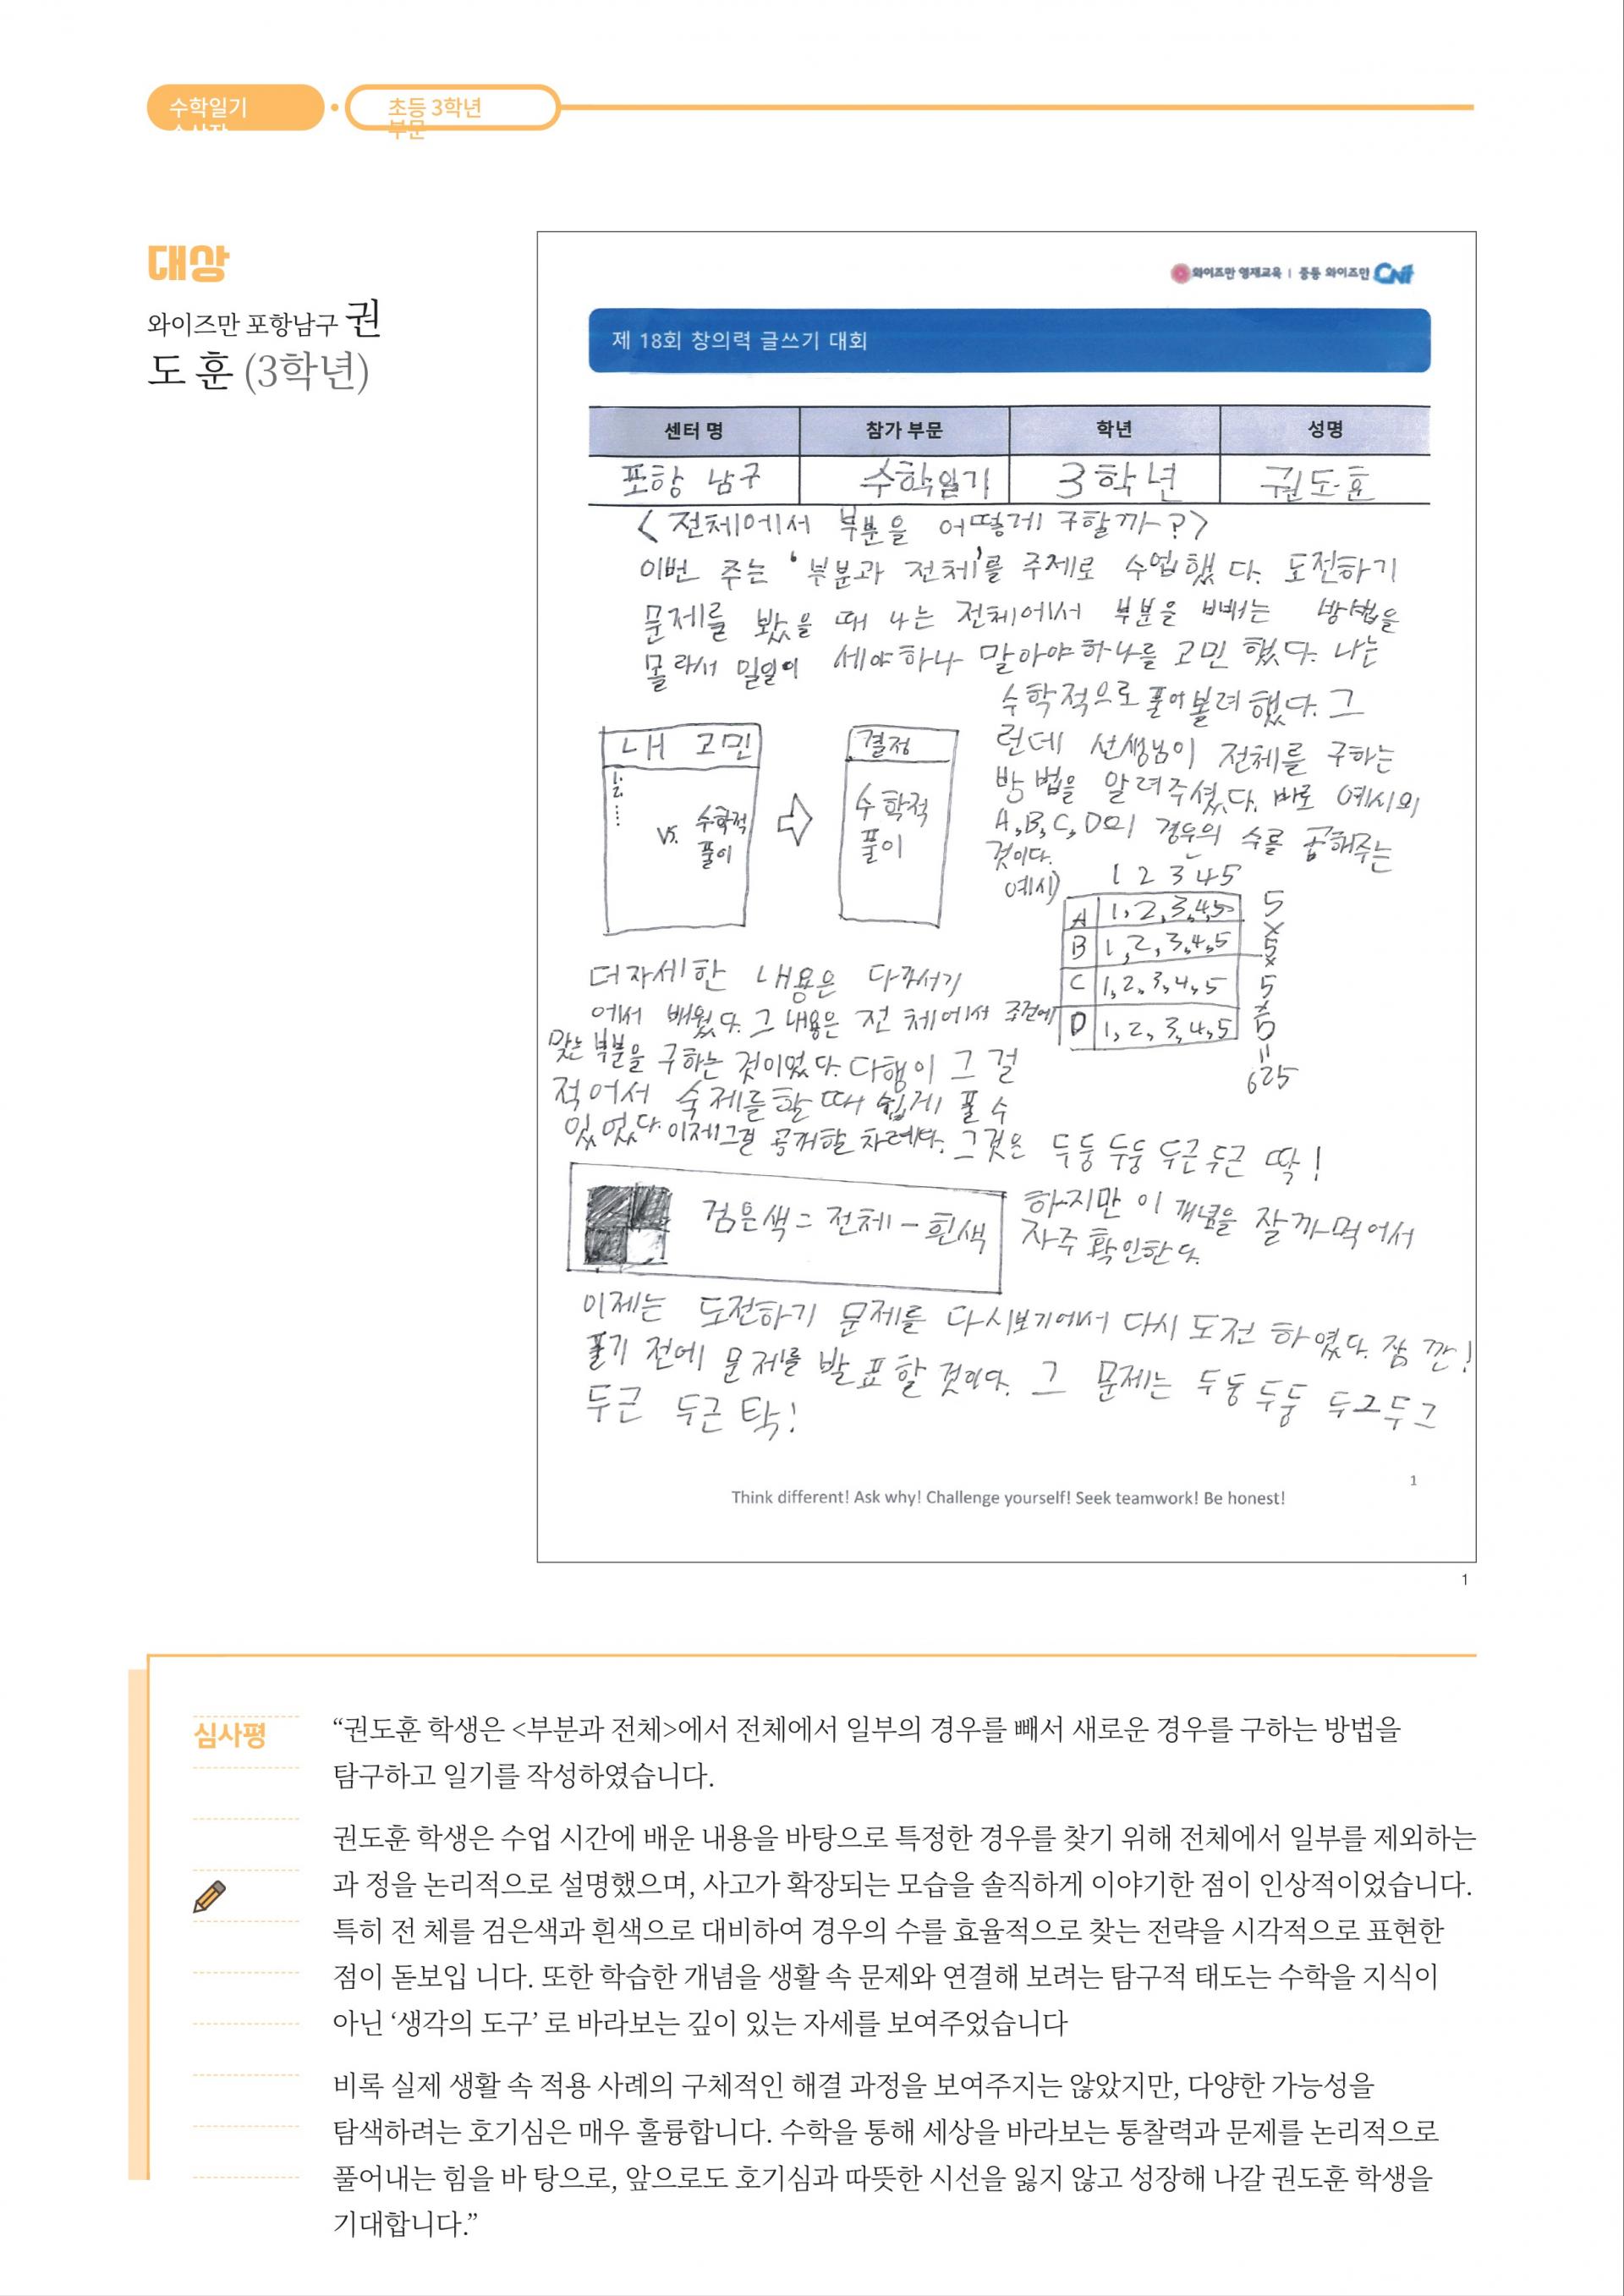 수학일기
초등 3학년
부문
대상
와이즈만 포항남구 권
도 훈 (3학년)
와이즈만 영재교육 | 중등 와이즈만 CNI
제 18회 창의력 글쓰기 대회
센터 명 참가 부문 학년 성명
포항 남구 수학일기 3학년 권도훈
<전체에서 부분을 어떻게 구할까?>
이번 주는 '부분과 전체'를 주제로 수업했다. 도전하기
문제를 봤을 때 나는 전체에서 부분을 빼는 방법을
몰라서 일일이 세야하나 말아야하나를 고민 했다. 나는
수학적으로 풀어볼려 했다. 그
런데 선생님이 전체를 구하는
방법을 알려주셨다. 바로 예시의
A,B,C,D의 경우의 수를 곱해주는
것이다.
내 고민
vs. 수학적
풀이
결정
수학적
풀이
예시)
1 2 3 4 5
A 1,2,3,4,5 5
×
B 1,2,3,4,5 5
×
C 1,2,3,4,5 5
×
D 1,2,3,4,5 5
=
625
더자세한 내용은 다가서기
에서 배웠다. 그 내용은 전체에서 조건에
맞는 부분을 구하는 것이였다. 다행이 그걸
적어서 숙제를할 때 쉽게 풀 수
있었다. 이제그걸 공개할 차례다. 그것은 두둥 두둥 두근두근 딱!
검은색 = 전체 - 흰색
하지만 이 개념을 잘 까먹어서
자주 확인한다.
이제는 도전하기 문제를 다시보기에서 다시 도전 하였다. 잠깐!
풀기 전에 문제를 발표할 것이다. 그 문제는 두둥 두둥 두그두그
두근 두근 탁!
1
Think different! Ask why! Challenge yourself! Seek teamwork! Be honest!
1
심사평
“권도훈 학생은 <부분과 전체>에서 전체에서 일부의 경우를 빼서 새로운 경우를 구하는 방법을
탐구하고 일기를 작성하였습니다.
권도훈 학생은 수업 시간에 배운 내용을 바탕으로 특정한 경우를 찾기 위해 전체에서 일부를 제외하는
과 정을 논리적으로 설명했으며, 사고가 확장되는 모습을 솔직하게 이야기한 점이 인상적이었습니다.
특히 전 체를 검은색과 흰색으로 대비하여 경우의 수를 효율적으로 찾는 전략을 시각적으로 표현한
점이 돋보입 니다. 또한 학습한 개념을 생활 속 문제와 연결해 보려는 탐구적 태도는 수학을 지식이
아닌 ‘생각의 도구’ 로 바라보는 깊이 있는 자세를 보여주었습니다
비록 실제 생활 속 적용 사례의 구체적인 해결 과정을 보여주지는 않았지만, 다양한 가능성을
탐색하려는 호기심은 매우 훌륭합니다. 수학을 통해 세상을 바라보는 통찰력과 문제를 논리적으로
풀어내는 힘을 바 탕으로, 앞으로도 호기심과 따뜻한 시선을 잃지 않고 성장해 나갈 권도훈 학생을
기대합니다.”